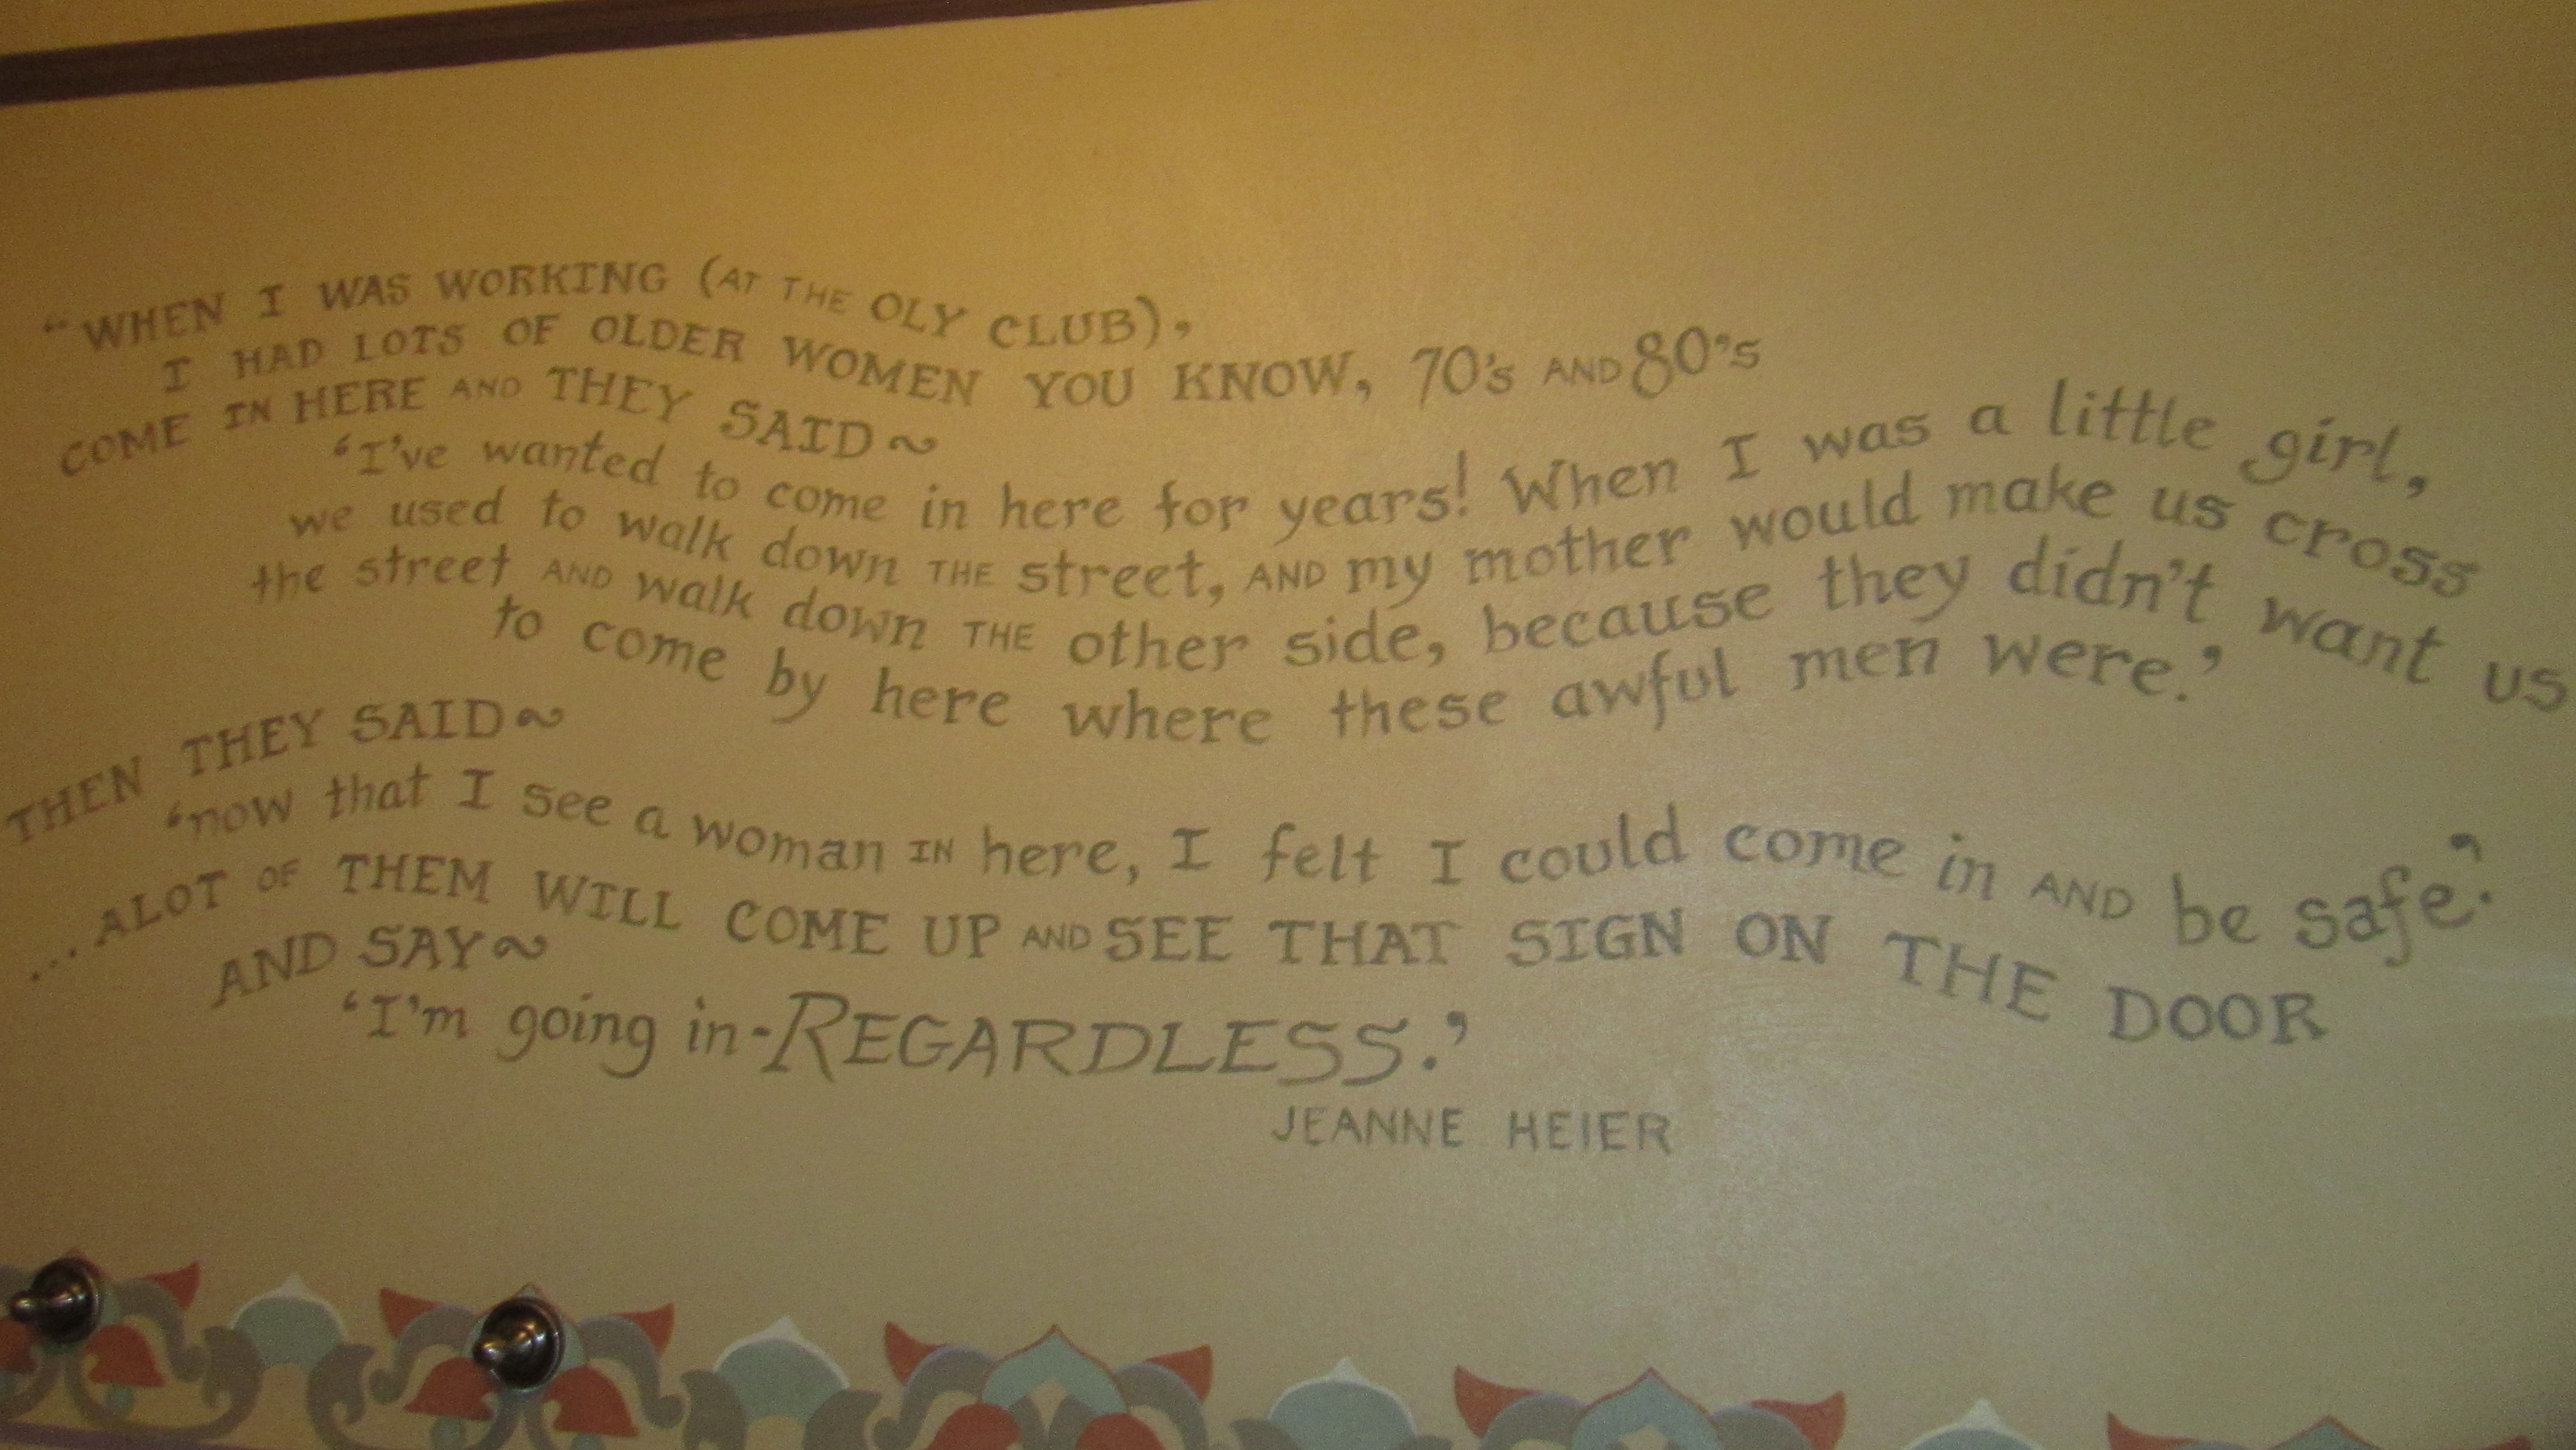 “WHEN I WAS WORKING (AT THE OLY CLUB),
I HAD LOTS OF OLDER WOMEN YOU KNOW, 70's AND 80's
COME IN HERE AND THEY SAID~
‘I've wanted to come in here for years! When I was a little girl,
we used to walk down THE street, AND my mother would make us cross
the street AND walk down THE other side, because they didn't want us
to come by here where these awful men were.’
THEN THEY SAID~
‘now that I see a woman IN here, I felt I could come in AND be safe.’
...ALOT OF THEM WILL COME UP AND SEE THAT SIGN ON THE DOOR
AND SAY~
‘I'm going in-REGARDLESS.’
JEANNE HEIER